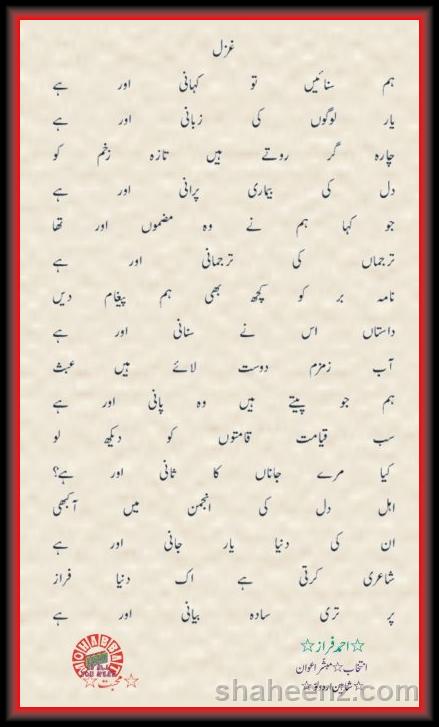 غزل
ہم سنائیں تو کہانی اور ہے
یار لوگوں کی زبانی اور ہے
چارہ گر روتے ہیں تازہ زخم کو
دل کی بیماری پرانی اور ہے
جو کہا ہم نے وہ مضموں اور تھا
ترجماں کی ترجمانی اور ہے
نامہ بر کو کچھ بھی ہم پیغام دیں
داستاں اس نے سنانی اور ہے
آب زمزم دوست لائے ہیں عبث
ہم جو پیتے ہیں وہ پانی اور ہے
سب قیامت قامتوں کو دیکھ لو
کیا مرے جاناں کا ثانی اور ہے؟
اہل دل کی انجمن میں آ کبھی
ان کی دنیا یار جانی اور ہے
شاعری کرتی ہے اک دنیا فراز
پر تری سادہ بیانی اور ہے
☆احمد فراز☆
انتخاب☆مبشر اعوان
☆شاہین اردو لو☆
MOHABBAT
YOU NEED
☆محبت☆
shaheenz.com